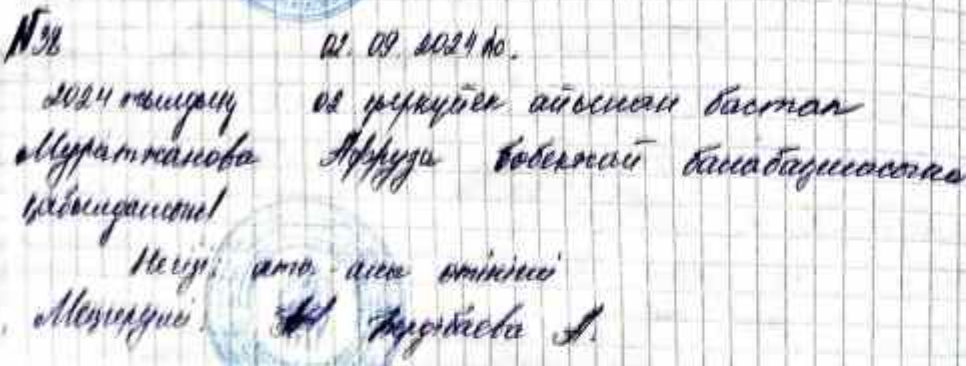 №38 02.09.2024 ж.
2024 жылдың 02 қыркүйек айынан бастап
Муратжанова Афруза бөбекжай балабақшасына
қабылдансын!
Негізі: ата ана өтініші
Меңгеруші: А.